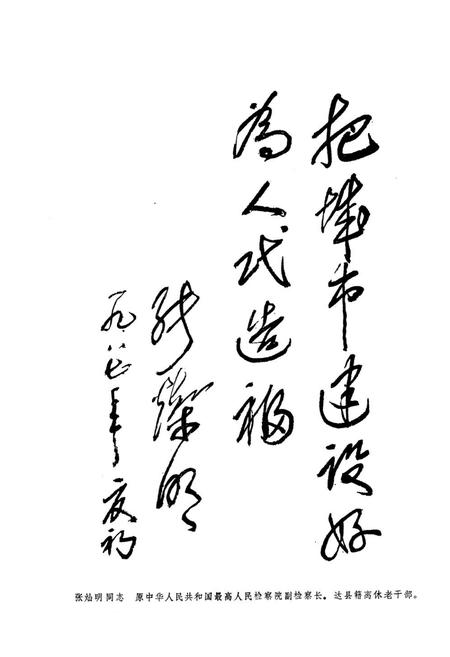 把城市建设好
為人民造福
张燦明
一九八七年夏初
张灿明同志　原中华人民共和国最高人民检察院副检察长。达县籍离休老干部。